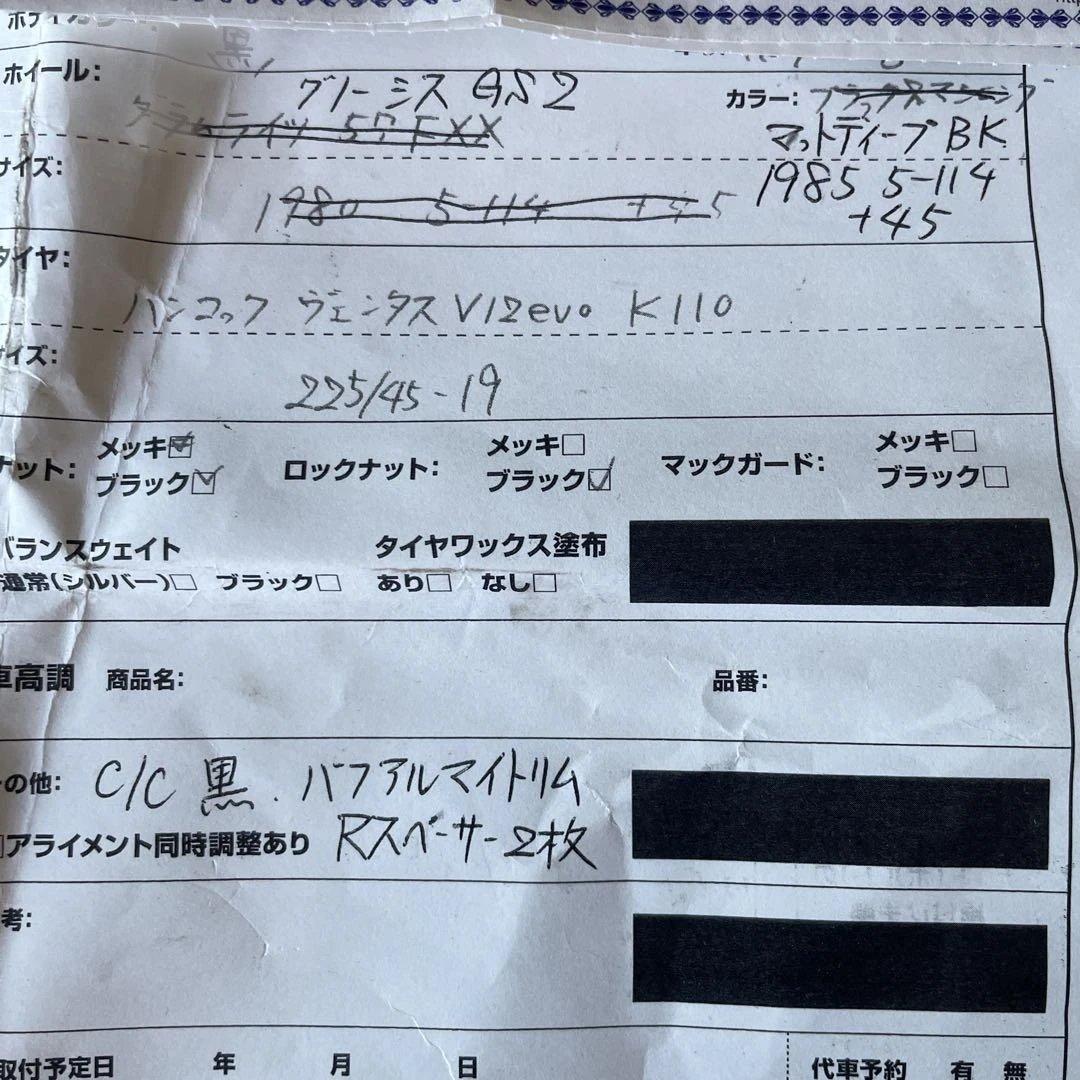 黒
ホイール: グリーミス GS2 カラー:
マットディープBK
サイズ: 1985 5-114
+45
1980 5-114 +45
タイヤ:
ハンコック ヴェンタス V12evo K110
イズ:
225/45-19
ナット: メッキ□ ブラック□ ロックナット: メッキ□ ブラック□ マックガード: メッキ□ ブラック□
バランスウェイト タイヤワックス塗布
通常(シルバー)□ ブラック□ あり□ なし□
車高調 商品名: 品番:
の他: C/C 黒. バフアルマイトリム
□アライメント同時調整あり Rスペーサー2枚
考:
取付予定日 年 月 日 代車予約 有 無